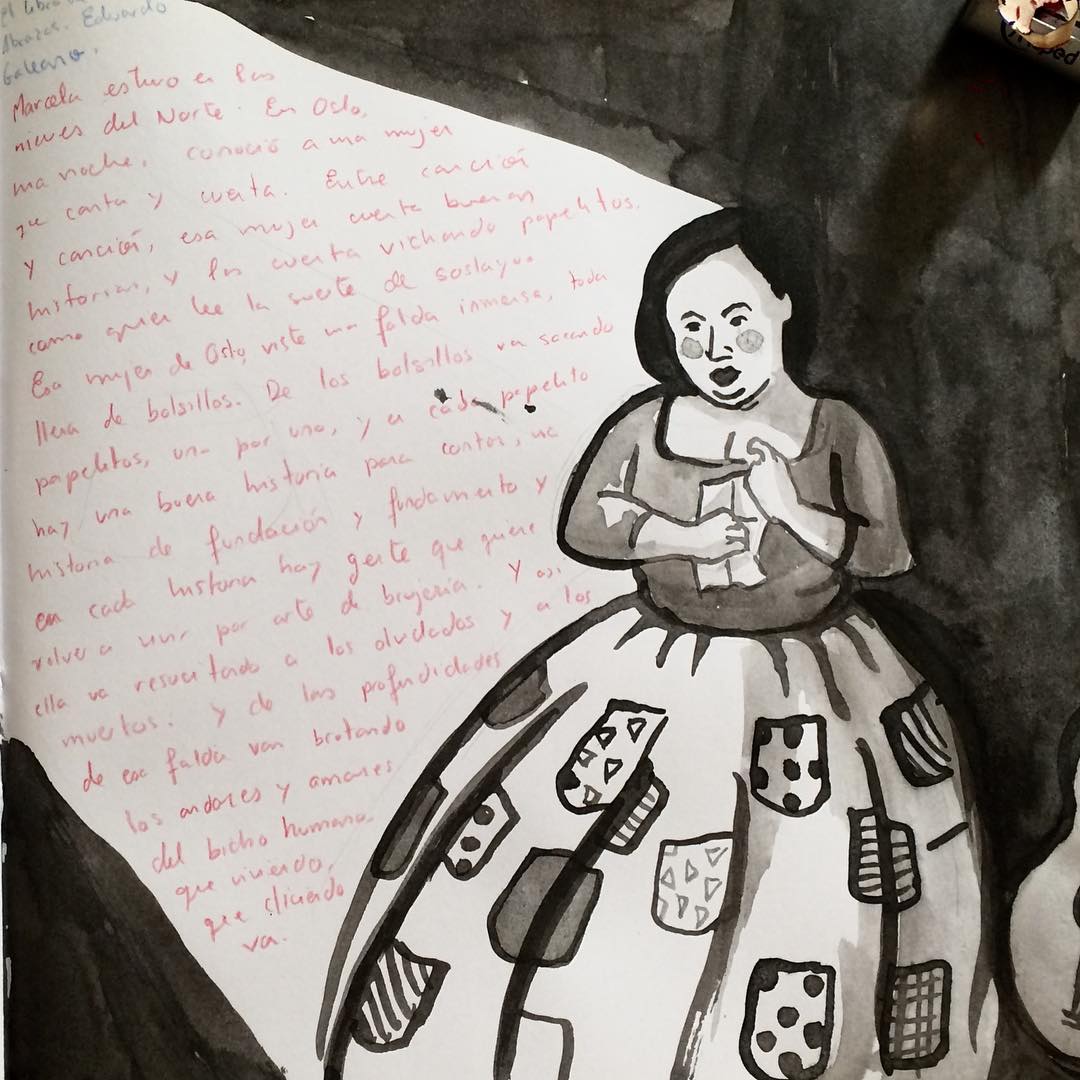 El libro de
Abrazos. Eduardo
Galeano.
Marcela estuvo en las
nieves del Norte. En Oslo,
una noche, conoció a una mujer
que canta y cuenta. Entre canción
y canción, esa mujer cuenta buenas
historias, y las cuenta vichando papelitos,
como quien lee la suerte de soslayo.
Esa mujer de Oslo, viste una falda inmensa, toda
llena de bolsillos. De los bolsillos va sacando
papelitos, uno por uno, y en cada papelito
hay una buena historia para contar, una
historia de fundación y fundamento y
en cada historia hay gente que quiere
volver a vivir por arte de brujería. Y así
ella va resucitando a los olvidados y a los
muertos. Y de las profundidades
de esa falda van brotando
los andares y amares
del bicho humano,
que viviendo,
que diciendo
va.